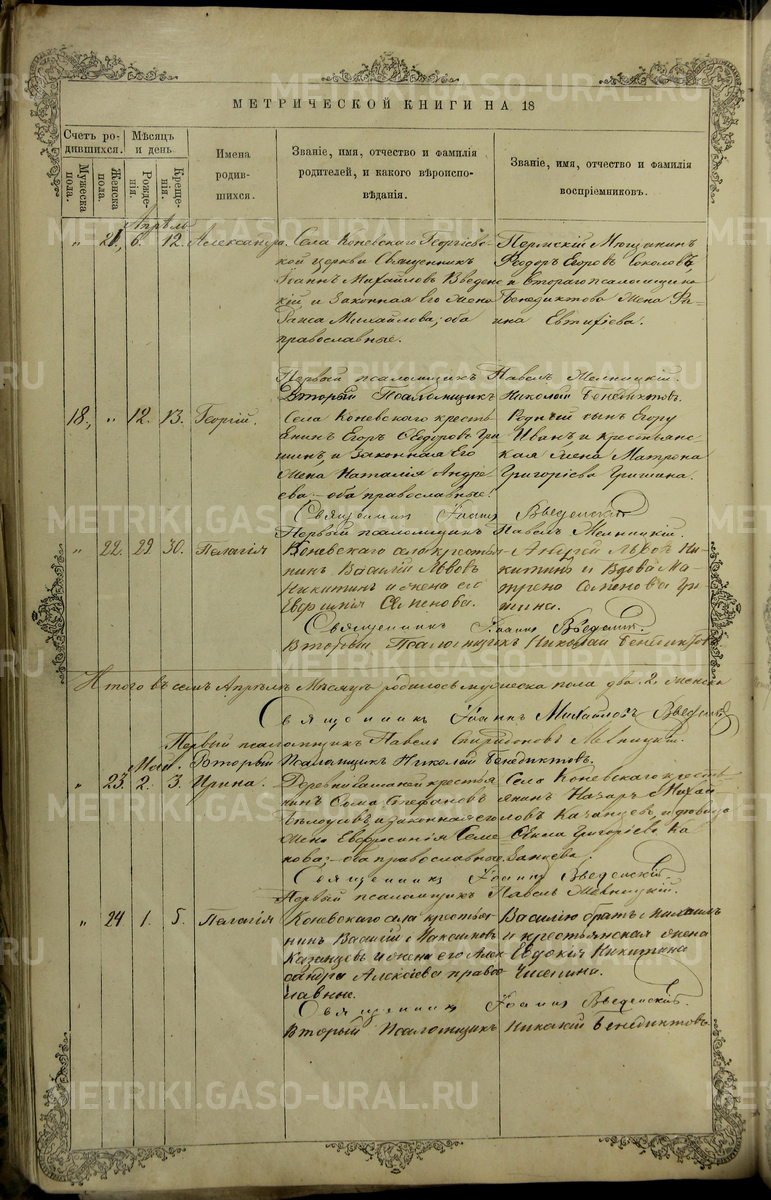 МЕТРИЧЕСКОЙ КНИГИ НА 18
Счетъ ро-
дившихся.
Мужеска пола.
Женска пола.
Мѣсяцъ
и день
Рожде-
нія.
Креще-
нія.
Имена
родив-
шихся.
Званіе, имя, отчество и фамилія
родителей, и какого вѣроиспо-
вѣданія.
Званіе, имя, отчество и фамилія
воспріемниковъ.
Апрѣль
" 21, 6. 12. Александра.
Села Коневскаго Георгіевс-
кой церкви Священникъ
Іоаннъ Михайловъ Введенс-
кій, и законная его жена
Раиса Михайлова; оба
православные.
Пермскій Мѣщанинъ
Ѳеодоръ Егоровъ Соколовъ,
и Втораго псаломщика
Бенедиктова жена
Евтихіева.
Первый псаломщикъ Павелъ Мелницкій.
Вторый Псаломщикъ Николай Бенедиктовъ.
18, " 12. 13. Георгій.
Села Коневскаго кресть-
янинъ Егоръ Ѳеодоровъ Гри-
шинъ, и законная его
жена Наталія Андре-
ева – оба православные.
Родный сынъ Егору
Иванъ и крестьянс-
кая жена Матрона
Григоріева Гришина.
Священникъ Іоаннъ Введенскій
Первый псаломщикъ Павелъ Мелницкій.
" 22. 29 30. Пелагія
Коневскаго села кресть-
нинъ Василій Львовъ
Никитинъ и жена его
Евфимія Семенова.
Андрей Львовъ Ни-
китинъ и Вдова Ма-
трена Семенова Гри-
шина.
Священникъ Іоаннъ Введенскій
Вторый Псаломщикъ Николай Бенедиктовъ
Итого въ семъ Апрѣлѣ Мѣсяцѣ родилось мужеска пола два 2. женска
Священникъ Іоаннъ Михайловъ Введенскій
Первый псаломщикъ Павелъ Спиридоновъ Мелницкій.
Вторый Псаломщикъ Николай Бенедиктовъ.
Май.
" 23. 2. 3. Ирина.
Деревни крестья-
нинъ Ѳома Стефановъ
Бѣлоусовъ, и законная его
жена Евфросинія Семе-
нова; – оба православные.
Села Коневскаго кресть-
янинъ Назаръ Михай-
ловъ Казанцевъ, и дѣвица
Ѳекла Григоріева Ка-
занцева.
Священникъ Іоаннъ Введенскій.
Первый псаломщикъ Павелъ Мелницкій.
" 24 1. 5. Пелагія
Коневскаго села крестья-
нинъ Василій Максимовъ
Казанцевъ и жена его Алек-
сандра Алексіева право-
славные.
Василію братъ
и крестьянская жена
Евдокія Никитина
Священникъ Іоаннъ Введенскій.
Вторый Псаломщикъ Николай Бенедиктовъ.
METRIKI.GASO-URAL.RU